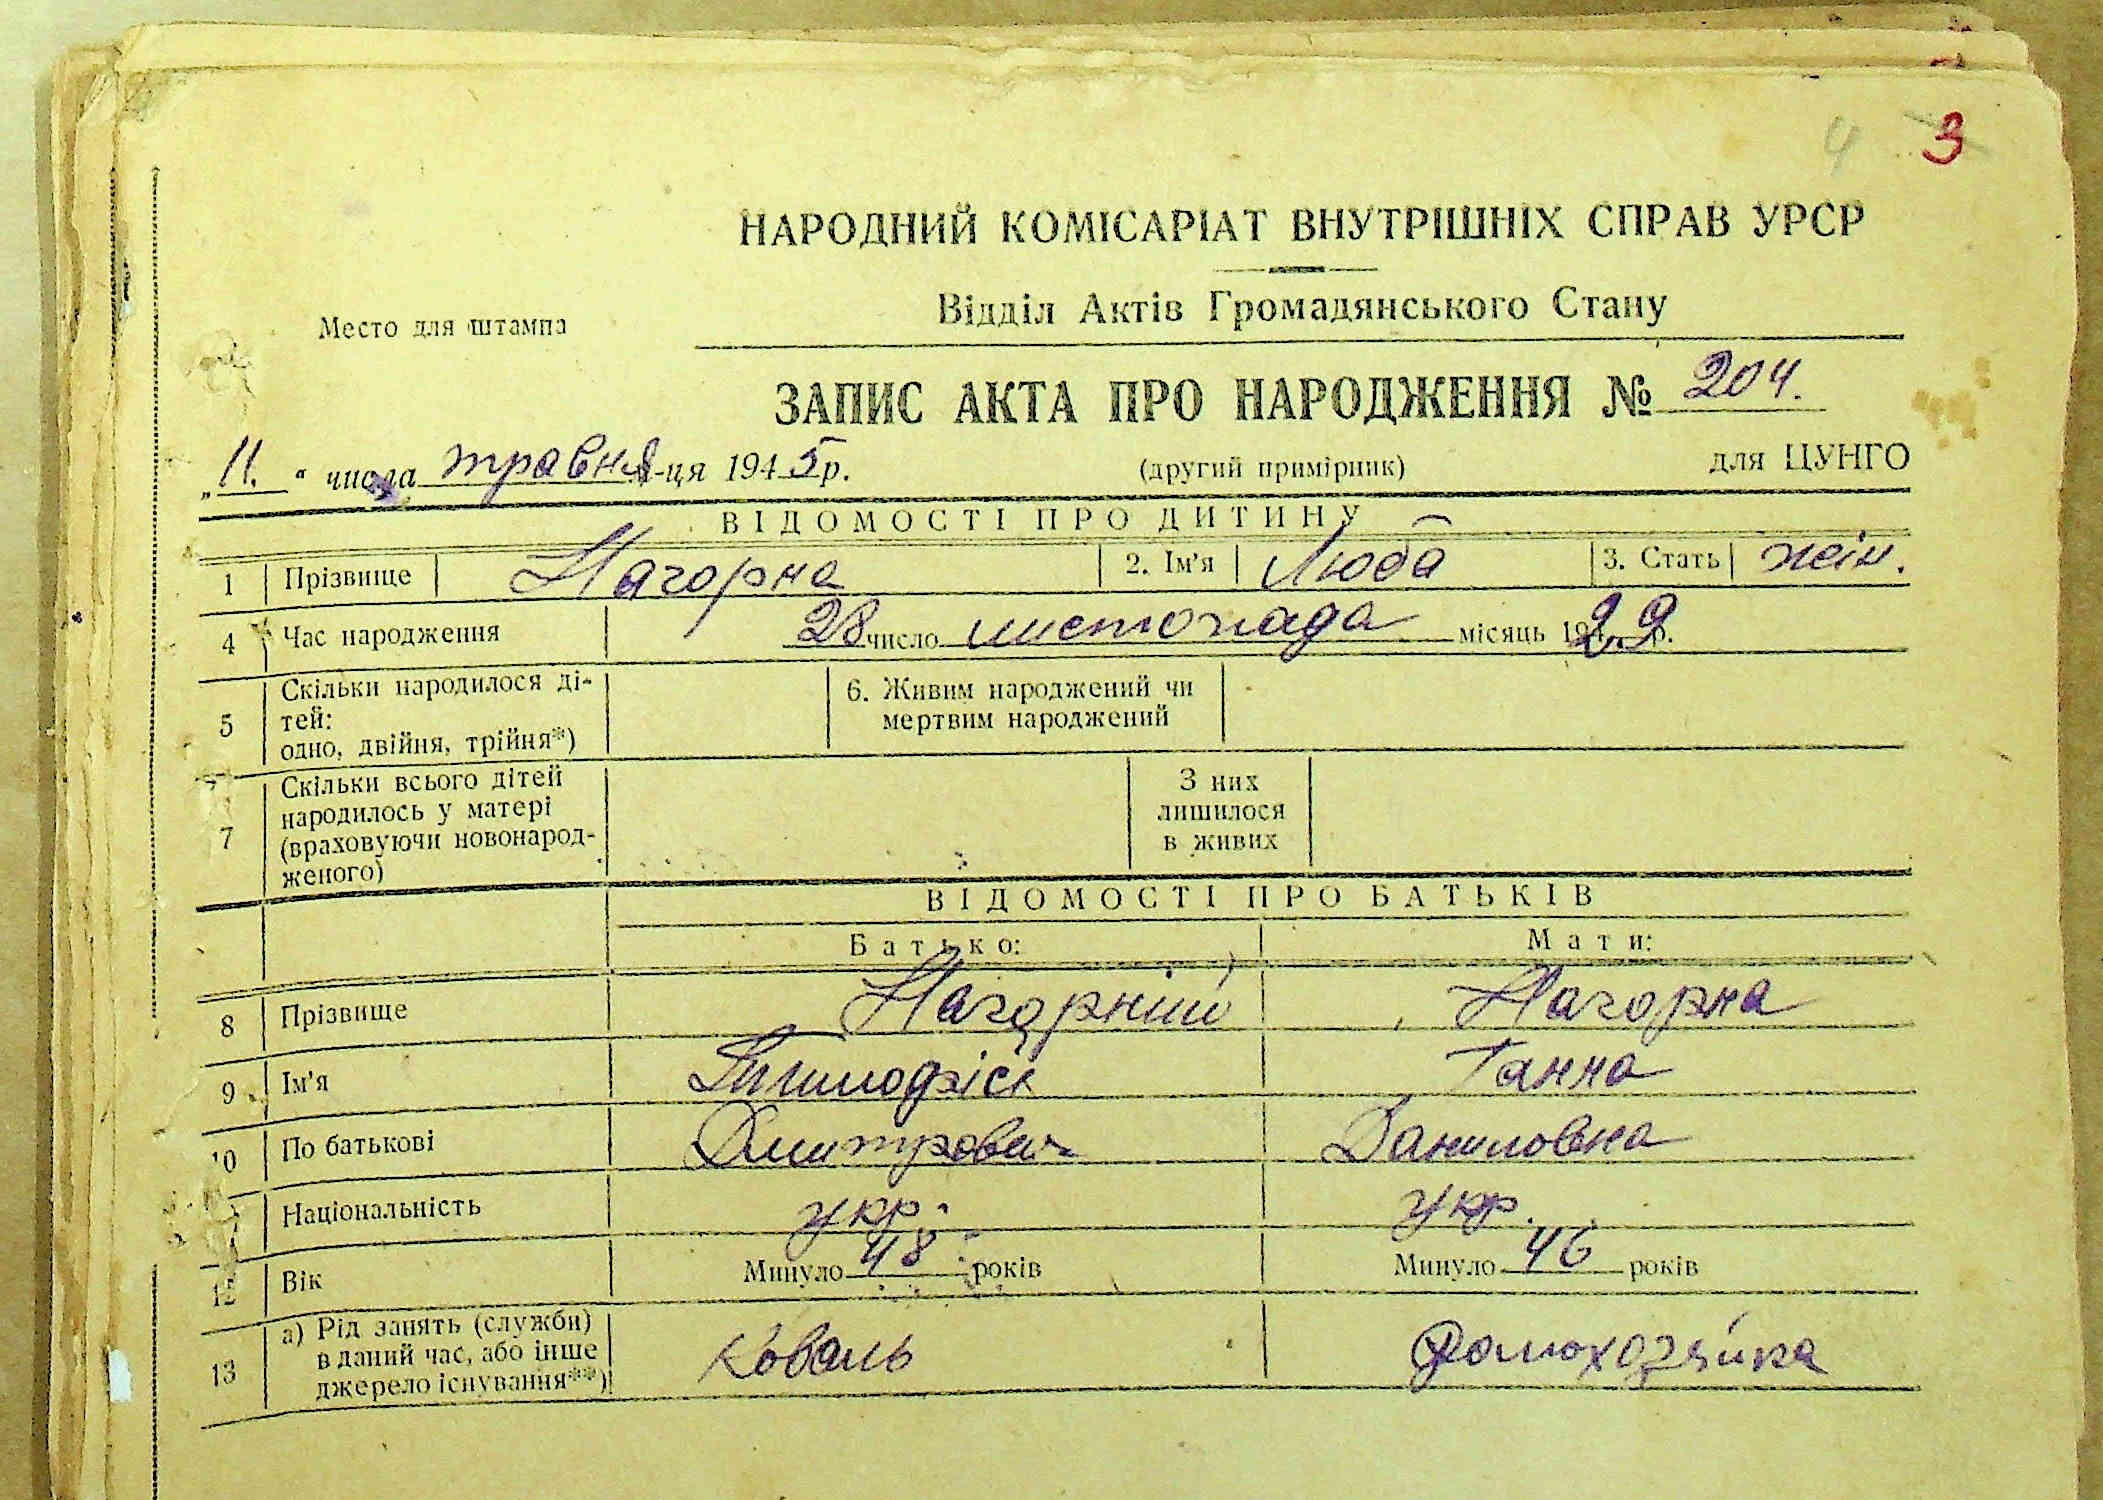 4 3
НАРОДНИЙ КОМІСАРІАТ ВНУТРІШНІХ СПРАВ УРСР
Відділ Актів Громадянського Стану
Место для штампа
ЗАПИС АКТА ПРО НАРОДЖЕННЯ № 204.
„11.“ числа травня м-ця 1945 р.
(другий примірник)
для ЦУНГО
ВІДОМОСТІ ПРО ДИТИНУ
1 Прізвище Нагорна 2. Ім'я Люба 3. Стать жін.
4 Час народження 28 число листопада місяць 1929 р.
5 Скільки народилося ді-
тей:
одно, двійня, трійня*)
6. Живим народжений чи
мертвим народжений
7 Скільки всього дітей
народилось у матері
(враховуючи новонарод-
женого)
З них
лишилося
в живих
ВІДОМОСТІ ПРО БАТЬКІВ
Батько: Мати:
8 Прізвище Нагорний Нагорна
9 Ім'я Ганна
10 По батькові Дмитрович Даниловна
Національність укр. укр.
12 Вік Минуло 48 років Минуло 46 років
13 а) Рід занять (служби)
в даний час, або інше
джерело існування**)
коваль домохозяйка